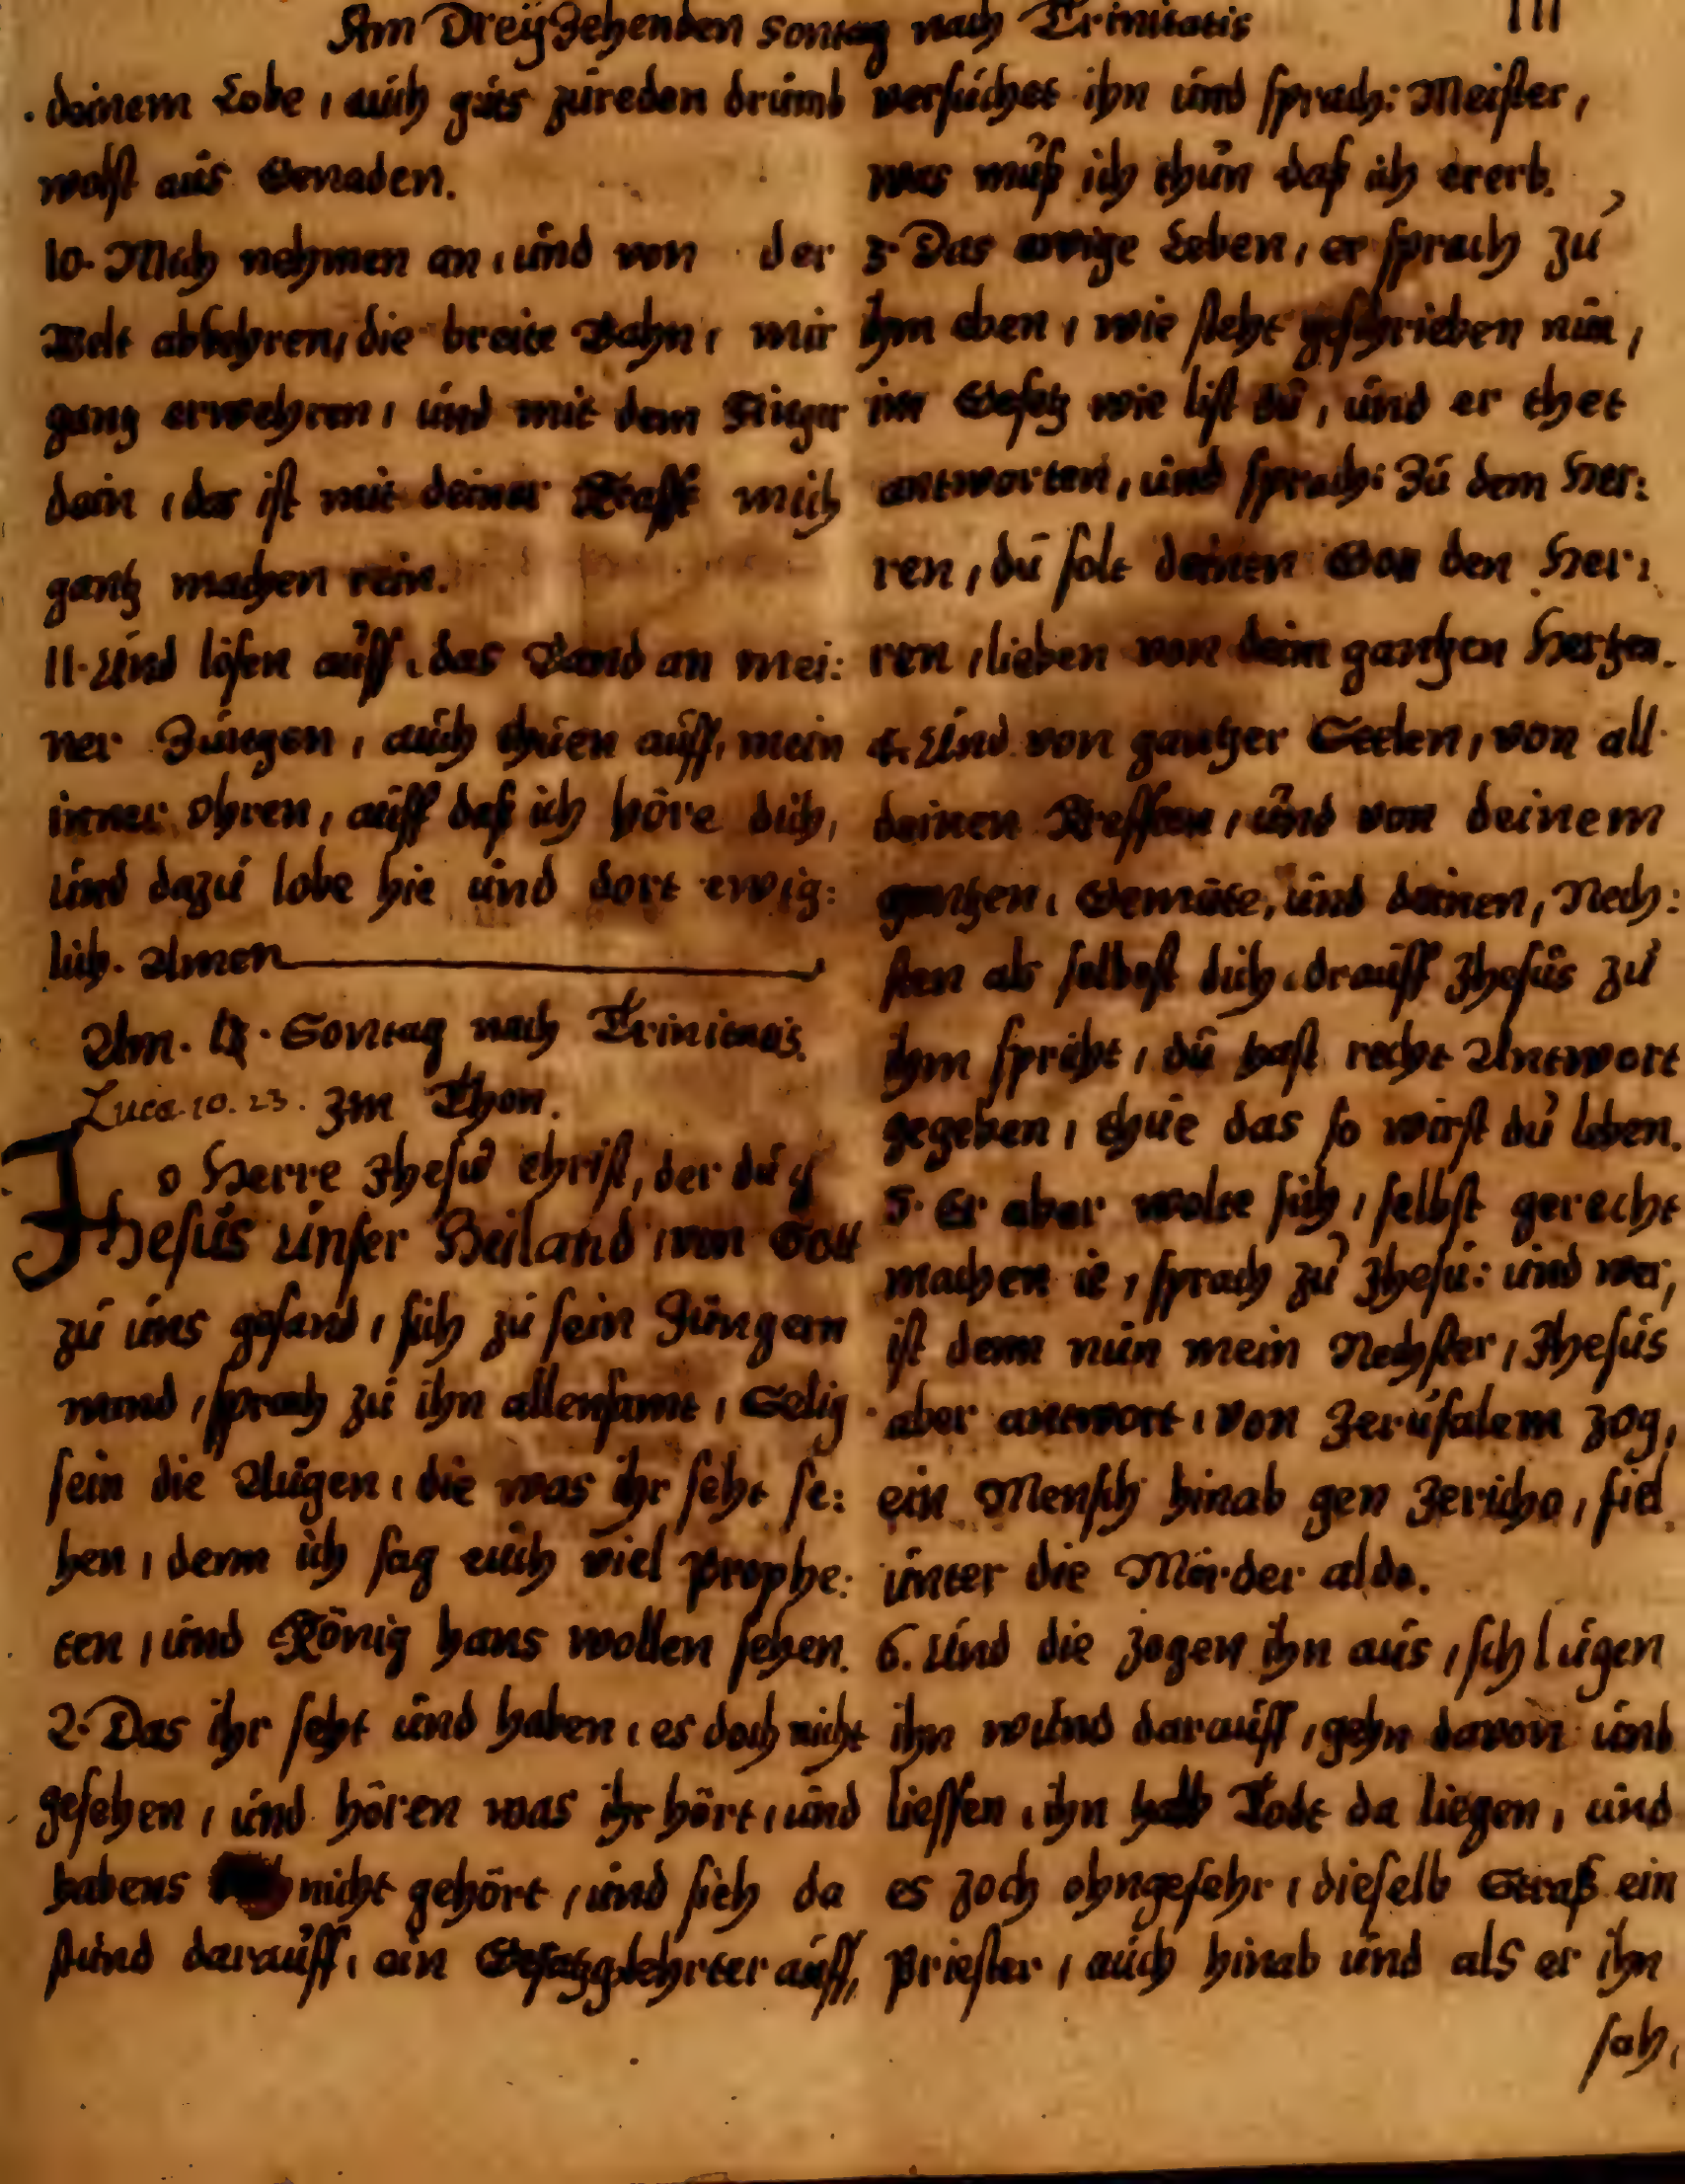 Am Dreÿzehenden Sontag nach Trinitatis 111
deinem Lobe, auch guts zureden drumb
wolst aus Genaden.
10. Mich nehmen an, und von der
Welt abkehren, die breite Bahn, mir
gang erwehren, und mit dem Finger
dein, das ist mit deiner Krafft mich
gantz machen rein.
11. Und lösen auff, das Band an mei:
ner Zungen, auch thuen auff, mein
inner Ohren, auff daß ich höre dich,
und dazu lobe hie und dort ewig:
lich. Amen
Am. 13. Sontag nach Trinitatis.
Luca. 10. 23. Im Thon.
O Herre Jhesu Christ, der du
Jhesus unser Heiland, von Gott
zu uns gesand, sich zu sein Jüngern
wand, sprach zu ihn allensamt, Selig
sein die Augen, die was ihr seht se:
hen, denn ich sag euch viel Prophe:
ten, und König hans wollen sehen.
2. Das ihr seht und haben, es doch nicht
gesehen, und hören was ihr hört, und
habens nicht gehört, und sieh da
stund darauff, ein Gesatzgelehrter auff,
versuchet ihn und sprach: Meister,
was muß ich thun daß ich ererb.
3. Das ewige Leben, er sprach zu
ihm eben, wie steht geschrieben nun,
im Gesetz wie list du, und er thet
antworten, und sprach: Zu dem Her:
ren, du solt deinen Gott den Her:
ren, lieben von deim gantzen Hertzen.
4. Und von gantzer Seelen, von all
deinen Krefften, und von deinem
gantzen, Gemüte, und deinen, Nech:
sten als selbest dich, drauff Jhesus zu
ihm spricht, du hast recht Antwort
gegeben, thue das so wirst du leben.
5. Er aber wolte sich, selbst gerecht
machen ie, sprach zu Jhesu: und wer,
ist denn nun mein Nechster, Jhesus
aber antwort, von Jerusalem zog,
ein Mensch hinab gen Jericho, fiel
unter die Mörder alda.
6. Und die zogen ihn aus, schlugen
ihn wund darauff, gehn davon und
liessen, ihn halb Todt da liegen, und
es zoch ohngefehr, dieselb Straß ein
Priester, auch hinab und als er ihn
sah,